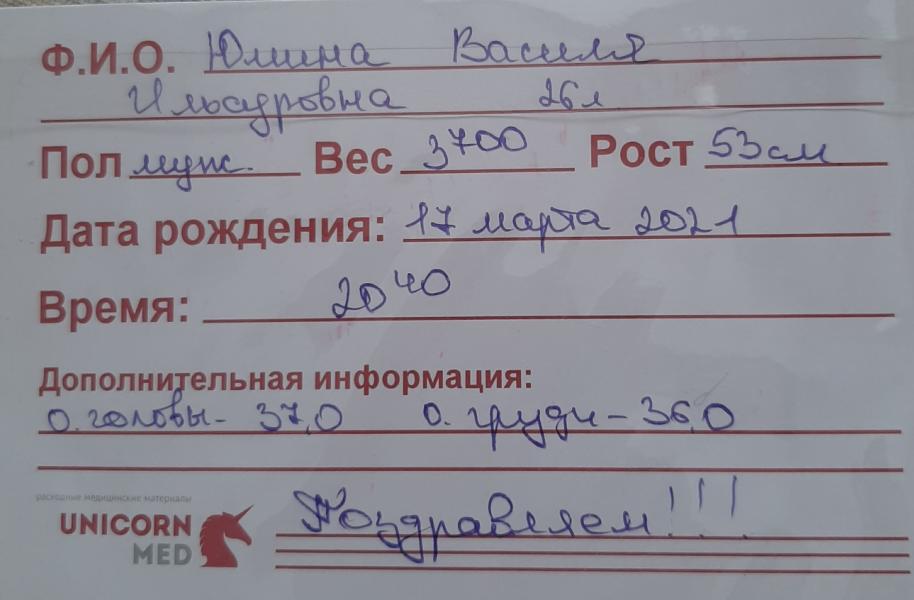 Ф.И.О. Юлина Василя
Ильсуровна 26 л
Пол муж. Вес 3700 Рост 53 см
Дата рождения: 17 марта 2021
Время: 20 40
Дополнительная информация:
О. головы - 37,0 О. груди - 36,0
расходные медицинские материалы
UNICORN
MED
Поздравляем!!!